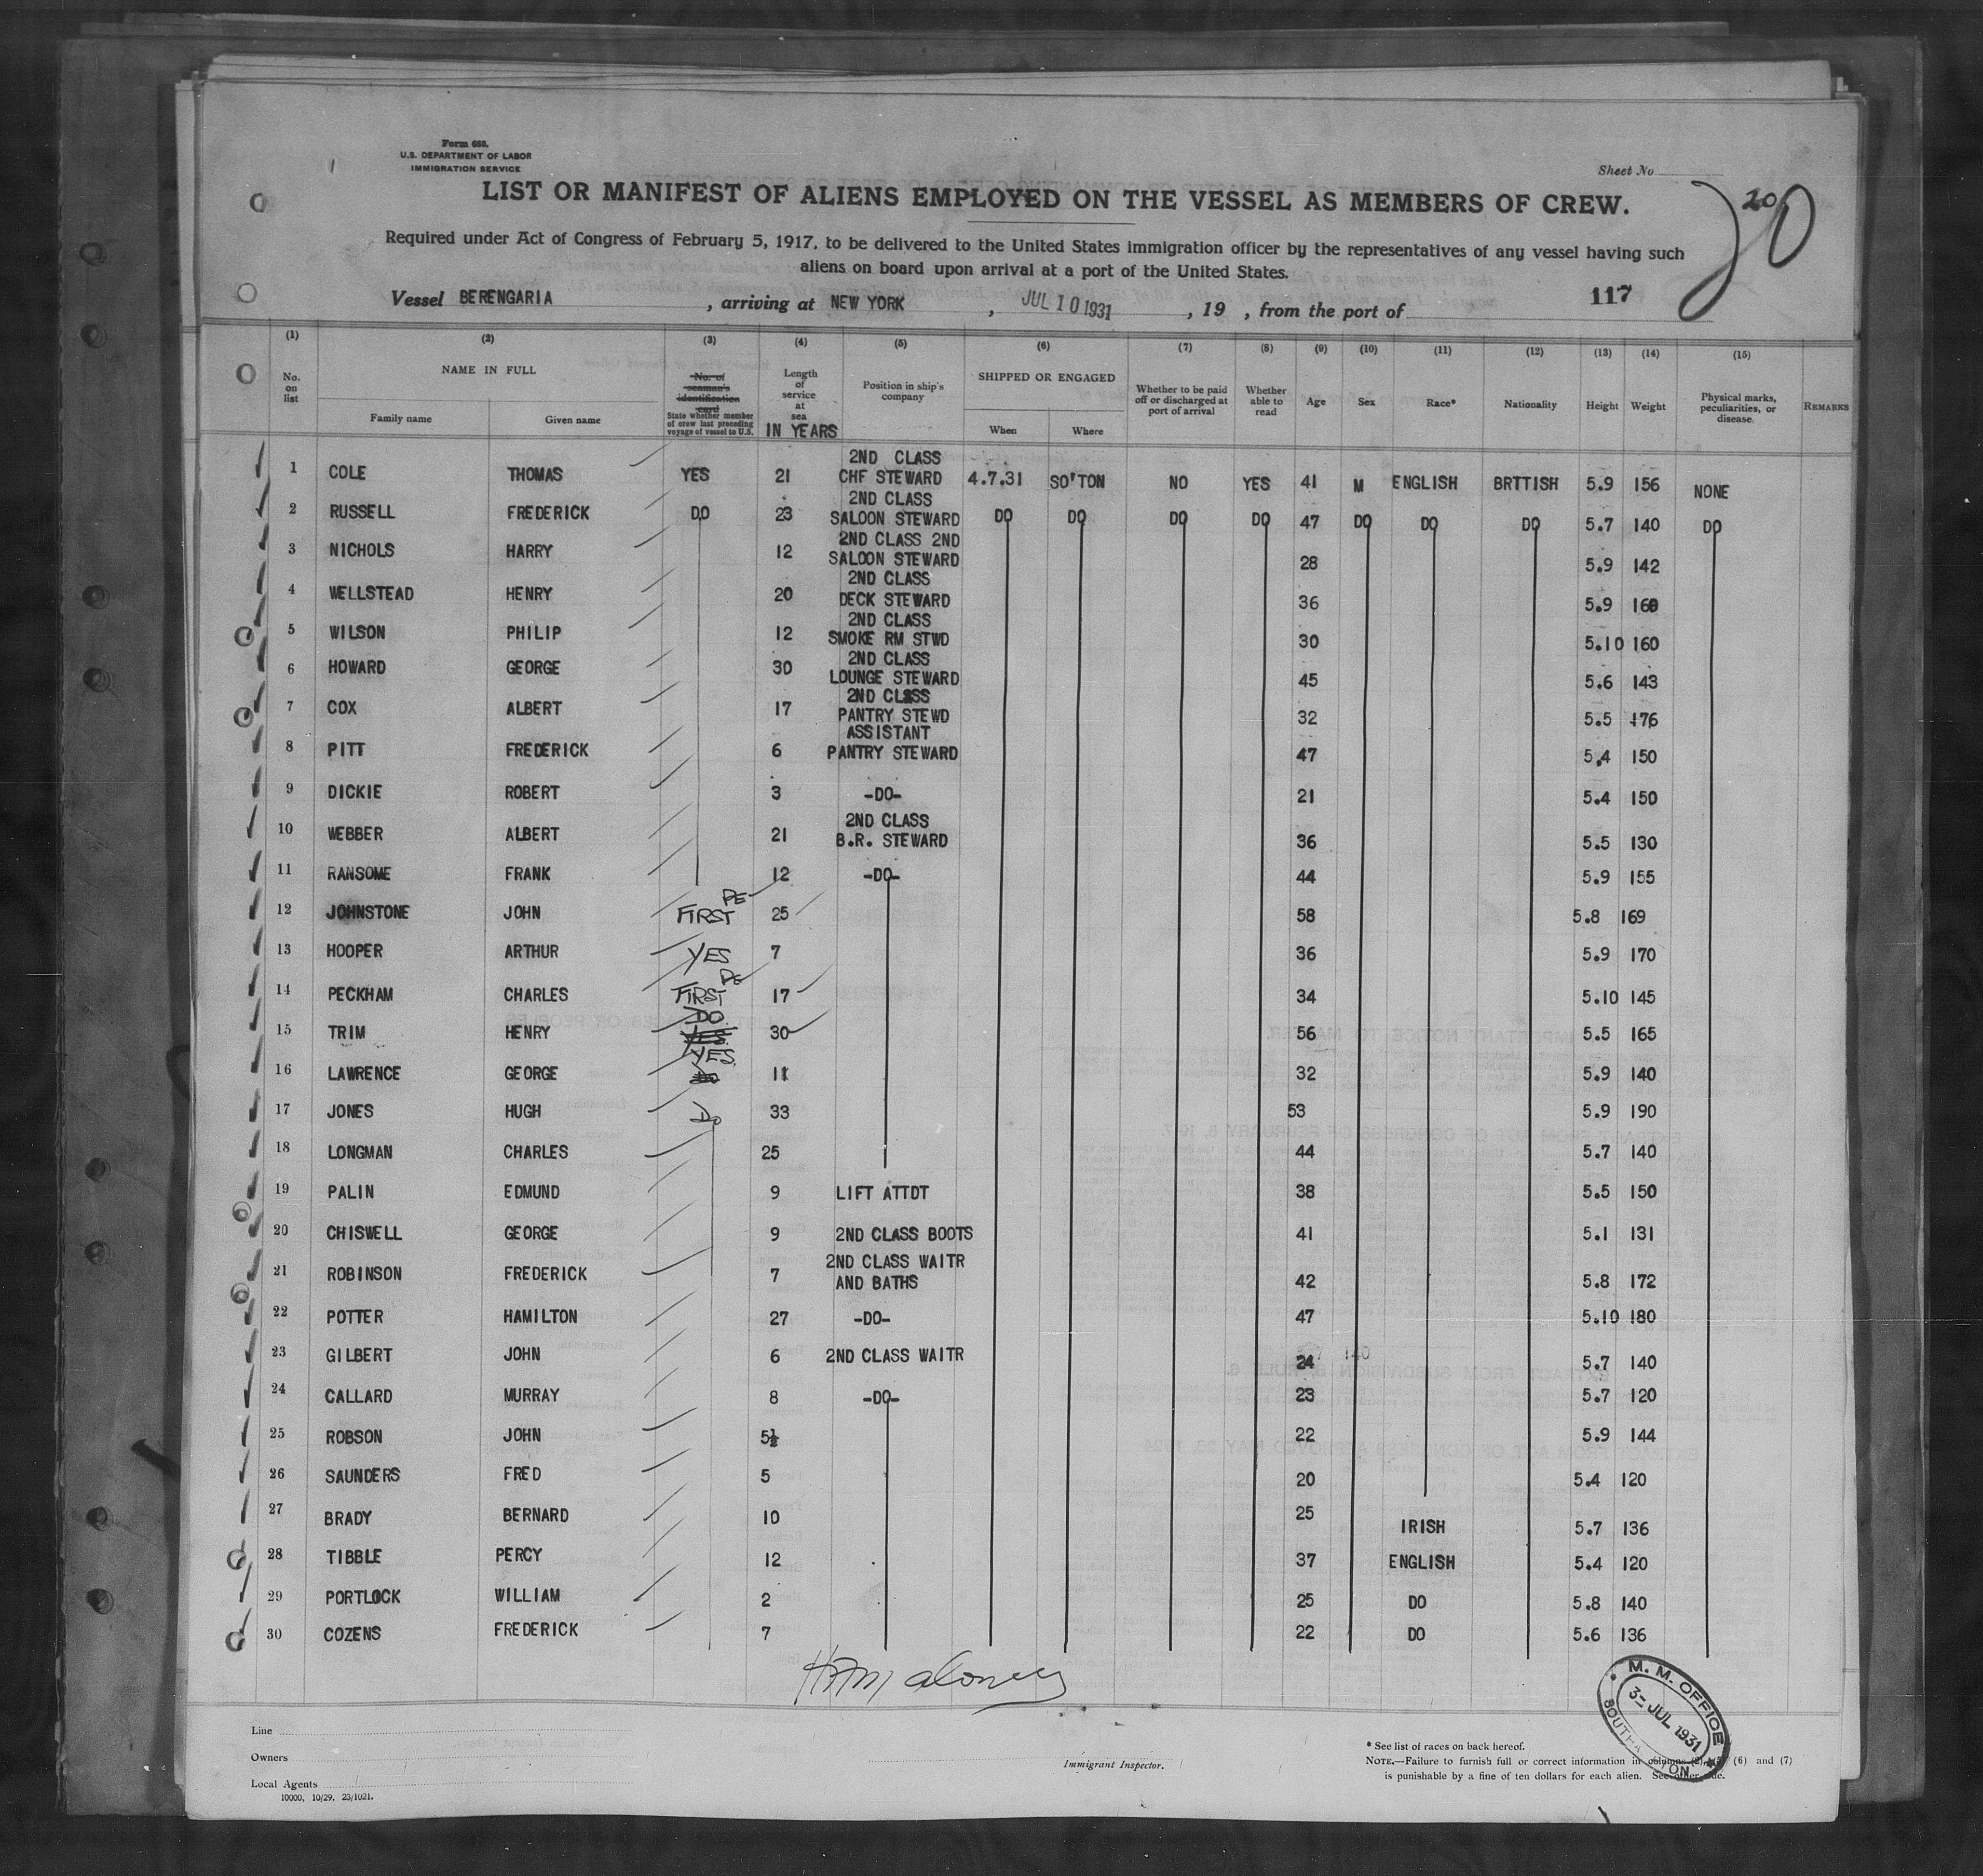 Form 689.
U.S. DEPARTMENT OF LABOR
IMMIGRATION SERVICE
Sheet No
20
20
LIST OR MANIFEST OF ALIENS EMPLOYED ON THE VESSEL AS MEMBERS OF CREW.
Required under Act of Congress of February 5, 1917, to be delivered to the United States immigration officer by the representatives of any vessel having such
aliens on board upon arrival at a port of the United States.
117
Vessel BERENGARIA , arriving at NEW YORK , JUL 10 1931 , 19 , from the port of
(1) (2) (3) (4) (5) (6) (7) (8) (9) (10) (11) (12) (13) (14) (15)
No. on list
NAME IN FULL
Family name Given name
No. of seaman's identification card
State whether member of crew last preceding voyage of vessel to U.S.
Length of service at sea
IN YEARS
Position in ship's company
SHIPPED OR ENGAGED
When Where
Whether to be paid off or discharged at port of arrival
Whether able to read
Age Sex Race* Nationality Height Weight
Physical marks, peculiarities, or disease
REMARKS
1 COLE THOMAS YES 21 2ND CLASS CHF STEWARD 4.7.31 SO'TON NO YES 41 M ENGLISH BRTTISH 5.9 156 NONE
2 RUSSELL FREDERICK DO 23 2ND CLASS SALOON STEWARD DO DO DO DO 47 DO DO DO 5.7 140 DO
3 NICHOLS HARRY 12 2ND CLASS 2ND SALOON STEWARD 28 5.9 142
4 WELLSTEAD HENRY 20 2ND CLASS DECK STEWARD 36 5.9 160
5 WILSON PHILIP 12 2ND CLASS SMOKE RM STWD 30 5.10 160
6 HOWARD GEORGE 30 2ND CLASS LOUNGE STEWARD 45 5.6 143
7 COX ALBERT 17 2ND CLASS PANTRY STEWD 32 5.5 176
8 PITT FREDERICK 6 ASSISTANT PANTRY STEWARD 47 5.4 150
9 DICKIE ROBERT 3 -DO- 21 5.4 150
10 WEBBER ALBERT 21 2ND CLASS B.R. STEWARD 36 5.5 130
11 RANSOME FRANK 12 -DO- 44 5.9 155
12 JOHNSTONE JOHN FIRST 25 58 5.8 169
13 HOOPER ARTHUR YES 7 36 5.9 170
14 PECKHAM CHARLES FIRST 17 34 5.10 145
15 TRIM HENRY DO YES 30 56 5.5 165
16 LAWRENCE GEORGE YES 11 32 5.9 140
17 JONES HUGH DO 33 53 5.9 190
18 LONGMAN CHARLES 25 44 5.7 140
19 PALIN EDMUND 9 LIFT ATTDT 38 5.5 150
20 CHISWELL GEORGE 9 2ND CLASS BOOTS 41 5.1 131
21 ROBINSON FREDERICK 7 2ND CLASS WAITR AND BATHS 42 5.8 172
22 POTTER HAMILTON 27 -DO- 47 5.10 180
23 GILBERT JOHN 6 2ND CLASS WAITR 24 5.7 140
24 CALLARD MURRAY 8 -DO- 23 5.7 120
25 ROBSON JOHN 5½ 22 5.9 144
26 SAUNDERS FRED 5 20 5.4 120
27 BRADY BERNARD 10 25 IRISH 5.7 136
28 TIBBLE PERCY 12 37 ENGLISH 5.4 120
29 PORTLOCK WILLIAM 2 25 DO 5.8 140
30 COZENS FREDERICK 7 22 DO 5.6 136
Line
Owners
Local Agents
10000, 10/29. 23/1021.
Immigrant Inspector.
* See list of races on back hereof.
NOTE.—Failure to furnish full or correct information in columns (6) and (7)
is punishable by a fine of ten dollars for each alien.
M. M. OFFICE
3- JUL 1931